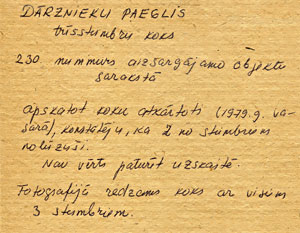 DĀRZNIEKU PAEGLIS
trīsstumbru koks
230. nummurs aizsargājamo objektu
sarakstā
Apskatot koku atkārtoti (1979.g. va-
sarā), konstatēju, ka 2 no stumbriem
nolūzuši.
Nav vērts paturēt uzskaitē.
Fotografijā redzams koks ar visiem
3 stumbriem.